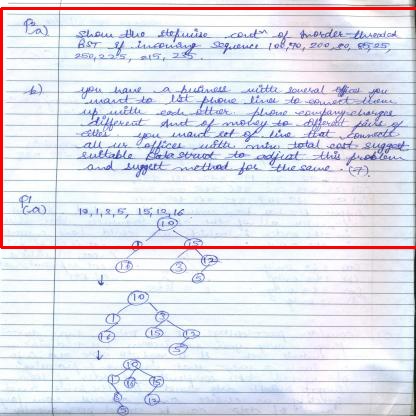 a) Show the stepwise const^n of inorder threaded
BST if incoming sequence 100, 90, 200, 80, 85, 25,
250, 225, 215, 235.
b) you have a business with several offices you
want to 1st phone lines to connect them
up with each other phone company charges
different amt of money to different pairs of
cities you want set of line that connects
all ur offices with min total cost suggest
suitable data struct to adjust this problem
and suggest method for the same. (7)
a) 10, 1, 2, 5, 15, 12, 16
10
15
16 3 12
5
10
1 3
16 15 12
5
10
1 16 15
12